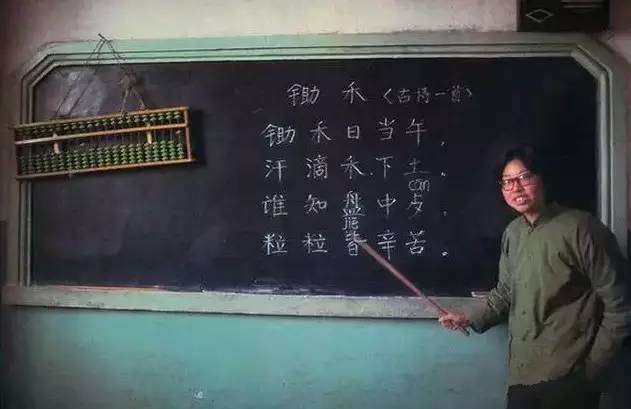 锄禾〈古诗一首〉
锄禾日当午，
汗滴禾下土。
can
谁知盘中歺，
粒粒皆辛苦。